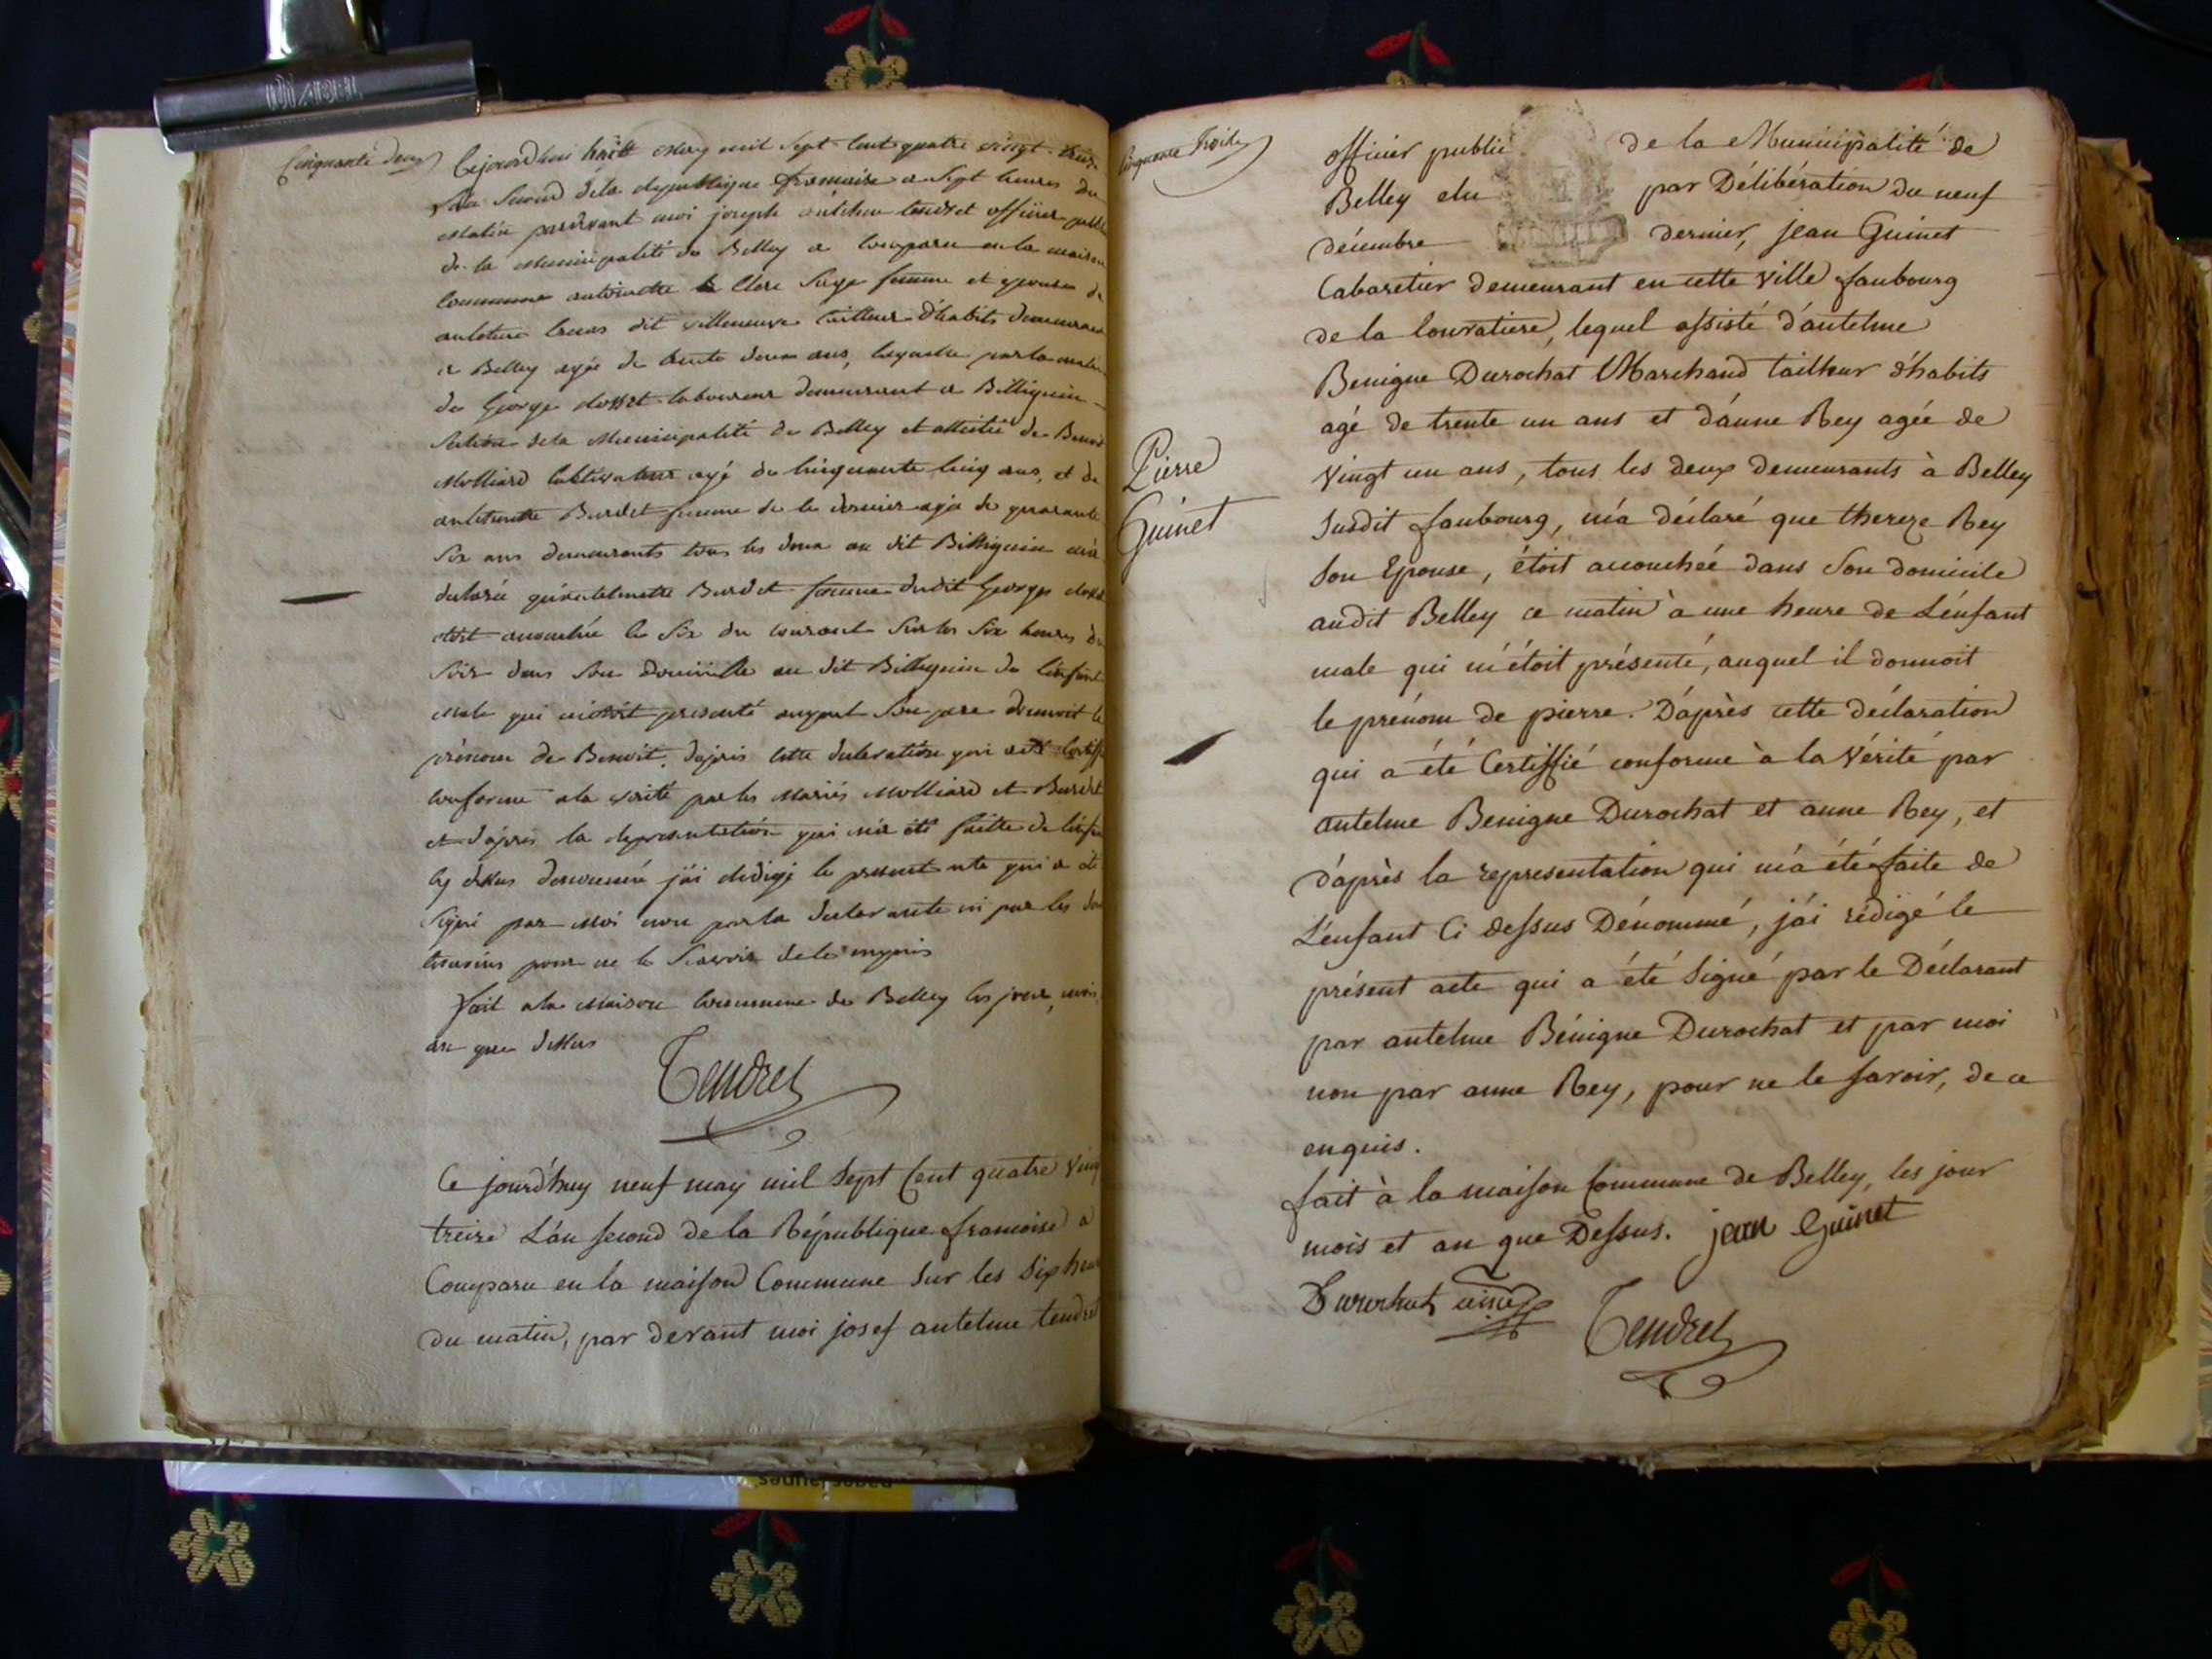 Cinquante deux
Cejourdhui huitt may mil Sept Cent quatre vingt treize
Lan Second dela Republique francoise a Sept heures du
Matin pardevant moi joseph antelme tendret officier public
de la Municipalité de Belley a Comparu en la maison
Commune antoinette Clerc Sage femme et epouse de
dit villeneuve tailleur d'habits demeurant
a Belley agée de trente deux ans, laquelle
de George laboureur demeurant a Billignin
Section dela Municipalité de Belley et assistée de Benoit
Molliard Cultivateur agé de Cinquante Cinq ans, et de
Burdet femme de ce dernier agée de quarante
Six ans demeurants tous les deux au dit Billignin m'a
declaré Burdet femme dudit George
étoit accouchée le Six du courant Sur les Six heures du
Soir dans Son domicille au dit Billignin de l'enfant
Male qui m'étoit presenté auquel Son pere donnoit le
prénom de Benoit. dapres cette declaration qui
Conforme a la verité par les Mariés Molliard et Burdet
et d'apres la representation qui m'a été faitte de l'enfant
cy dessus denommé j'ai redigé le present acte qui a été
Signé par Moi non par la declarante ni par les deux
temoins pour ne le Scavoir de ce enquis
fait a la Maison Commune de Belley les jour, mois,
an que dessus
Tendret
Ce jourd'huy neuf may mil Sept Cent quatre vingt
treize L'an second de la République francoise a
Comparu en la maison Commune Sur les Six heures
du matin, par devant moi josef antelme tendret
Cinquante Trois
officier public de la Municipalité de
Belley elu par Délibération du neuf
décembre dernier, jean Guinet
Cabaretier demeurant en cette ville faubourg
de la louvatiere, lequel assisté d'antelme
Benigne Durochat Marchand tailleur d'habits
agé de trente un ans et d'anne Rey agée de
vingt un ans, tous les deux demeurants à Belley
Pierre
Guinet
Susdit faubourg, m'a déclaré que thereze Rey
Son Epouse, étoit accouchée dans Son domicile
audit Belley ce matin à une heure de L'enfant
male qui m'étoit présenté, auquel il donnoit
le prénom de pierre. D'après cette déclaration
qui a été Certiffié conforme à la Vérité par
antelme Benigne Durochat et anne Rey, et
d'après la representation qui m'a été faite de
L'enfant Ci dessus Dénommé, j'ai rédigé le
présent acte qui a été Signé par le Déclarant
par antelme Bénigne Durochat et par moi
non par anne Rey, pour ne le savoir, de ce
enquis.
fait à la maison Commune de Belley, les jour
mois et an que Dessus. jean Guinet
Durochat
Tendret